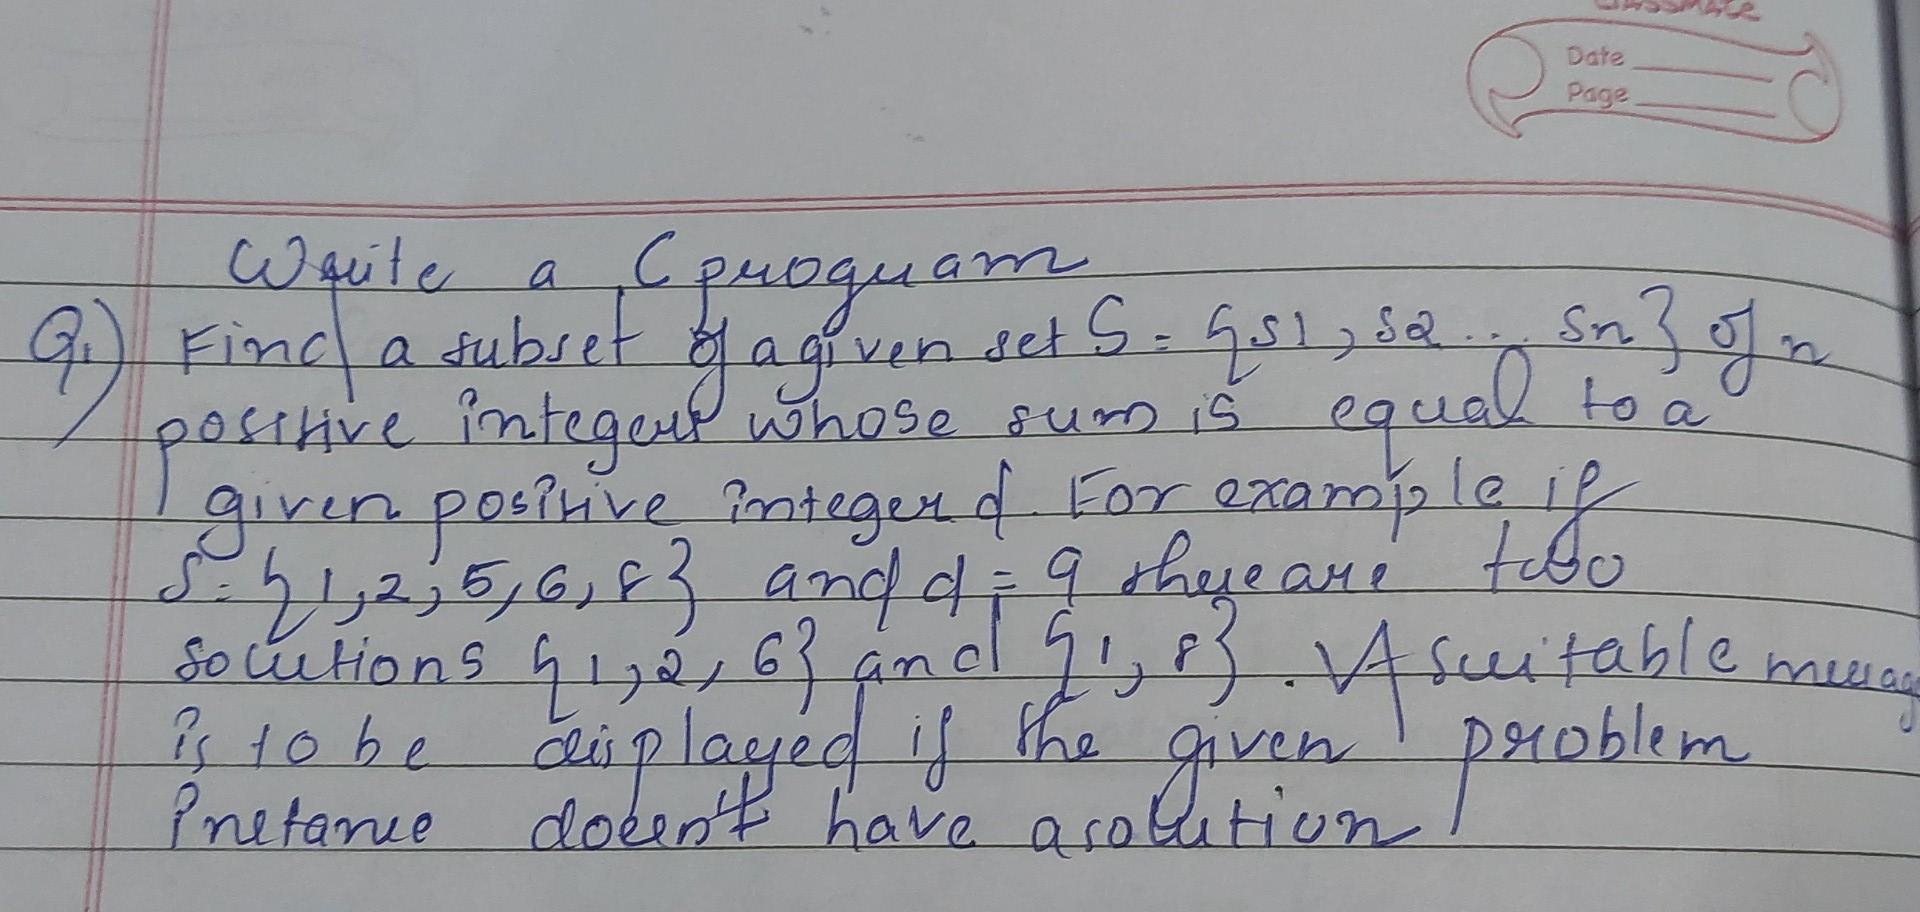 classmate
Date
Page
Write a C program
Q.1) Find a subset of a given set S = {s1, s2 ... sn} of n
positive integers whose sum is equal to a
given positive integer d. For example if
S = {1, 2, 5, 6, 8} and d = 9 there are two
solutions {1, 2, 6} and {1, 8}. A suitable messag
is to be displayed if the given problem
instance doesn't have a solution